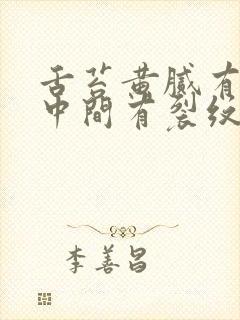 舌苔黄腻有
中间有裂纹
李善昌